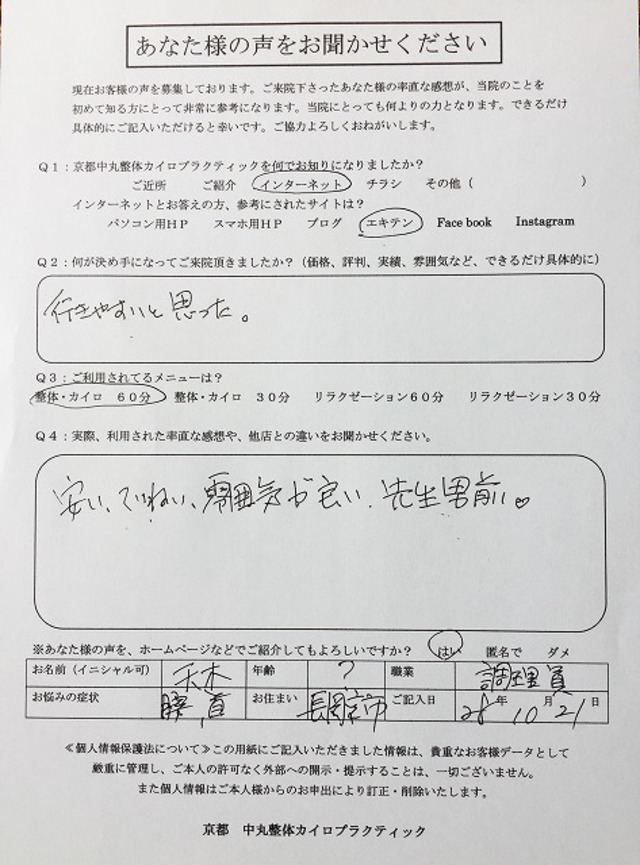 あなた様の声をお聞かせください
現在お客様の声を募集しております。ご来院下さったあなた様の率直な感想が、当院のことを
初めて知る方にとって非常に参考になります。当院にとっても何よりの力となります。できるだけ
具体的にご記入いただけると幸いです。ご協力よろしくおねがいします。
Q1：京都中丸整体カイロプラクティックを何でお知りになりましたか？
ご近所　ご紹介　インターネット　チラシ　その他（　　　　　　　）
インターネットとお答えの方、参考にされたサイトは？
パソコン用HP　スマホ用HP　ブログ　エキテン　Face book　Instagram
Q2：何が決め手になってご来院頂きましたか？（価格、評判、実績、雰囲気など、できるだけ具体的に）
行きやすいと思った。
Q3：ご利用されてるメニューは？
整体・カイロ　60分　整体・カイロ　30分　リラクゼーション60分　リラクゼーション30分
Q4：実際、利用された率直な感想や、他店との違いをお聞かせください。
安い、ていねい、雰囲気が良い、先生男前♡
※あなた様の声を、ホームページなどでご紹介してもよろしいですか？　はい　匿名で　ダメ
お名前（イニシャル可）　年齢　？　職業　調理員
お悩みの症状　腰、肩　お住まい　長岡京市　ご記入日　28年10月21日
≪個人情報保護法について≫この用紙にご記入いただきました情報は、貴重なお客様データとして
厳重に管理し、ご本人の許可なく外部への開示・提示することは、一切ございません。
また個人情報はご本人様からのお申出により訂正・削除いたします。
京都　中丸整体カイロプラクティック